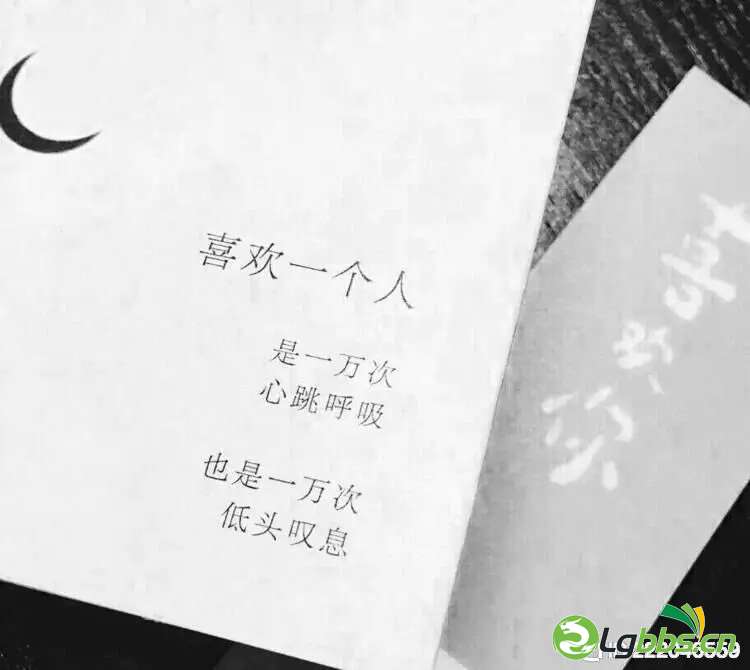 喜欢一个人
是一万次
心跳呼吸
也是一万次
低头叹息
Lgbbs.cn